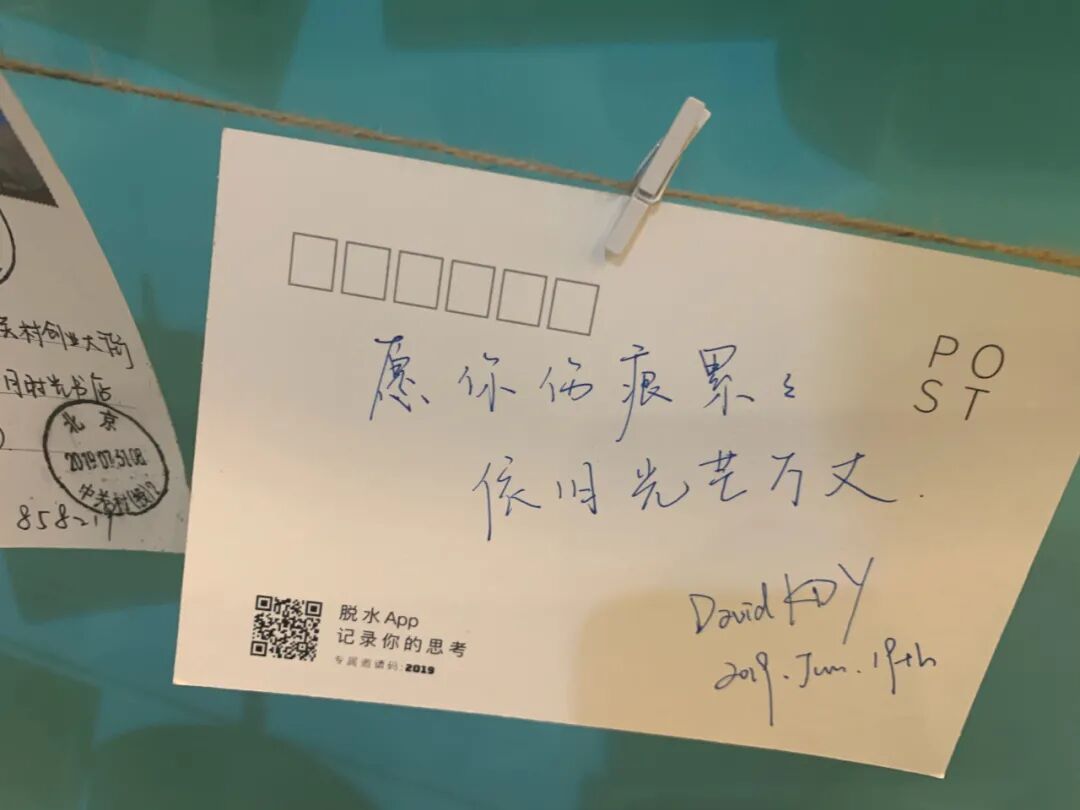 关村创业大街
同时光书店
北京
2019.07.31.08
858219
愿你伤痕累々
依旧光芒万丈.
PO
ST
David KDY
2019.Jun.19th
脱水App
记录你的思考
专属邀请码:2019